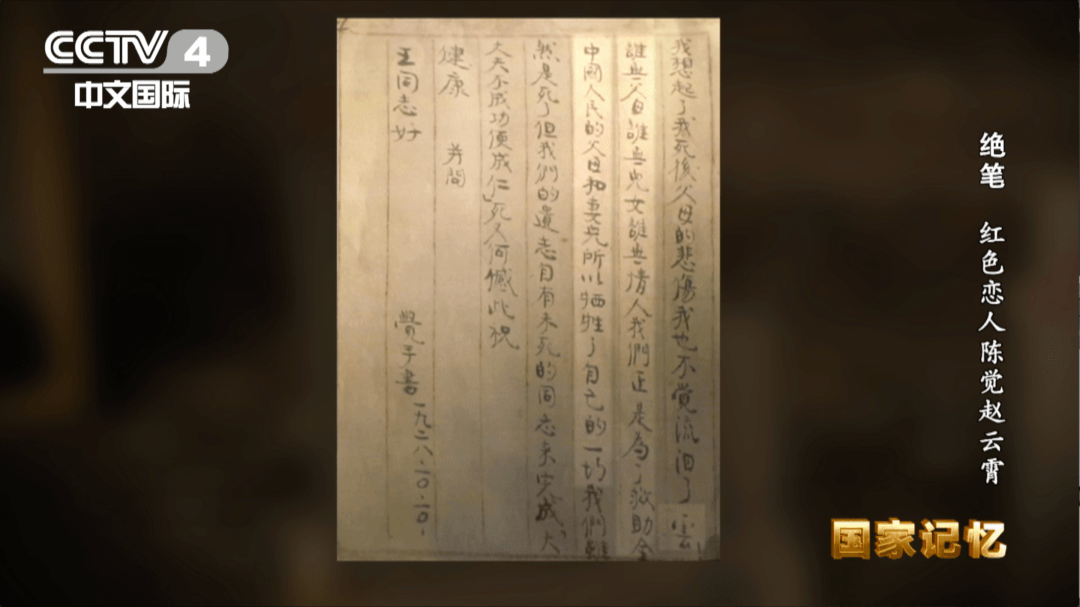 CCTV 4
中文国际
我想起了我死後父母的悲傷我也不覺流泪了雲
誰無父母誰無兒女誰無情人我們正是為了救助全
中國人民的父母和妻兒所以牺牲了自己的一切我們雖
然是死了但我們的遺志自有未死的同志來完成「大
丈夫不成功便成仁」死又何憾此祝
健康 并問
王同志好
覺手書 一九二八·一〇·一〇·
绝笔 红色恋人陈觉赵云霄
国家记忆